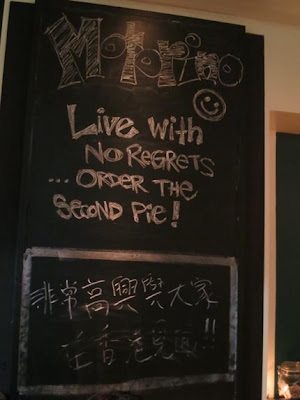 Motorino
Live with
No Regrets
... Order the
Second Pie!
非常高興與大家
在香港見面!!